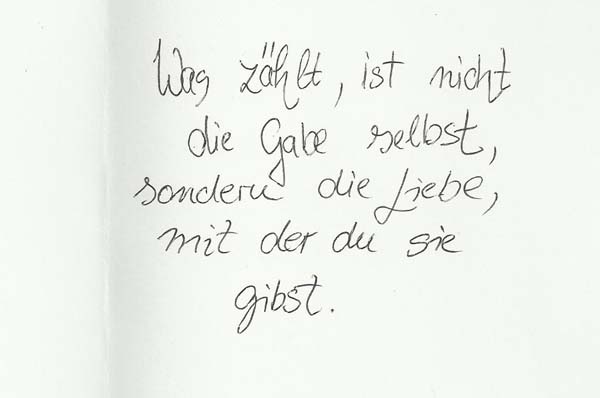 Was zählt, ist nicht
die Gabe selbst,
sondern die Liebe,
mit der du sie
gibst.